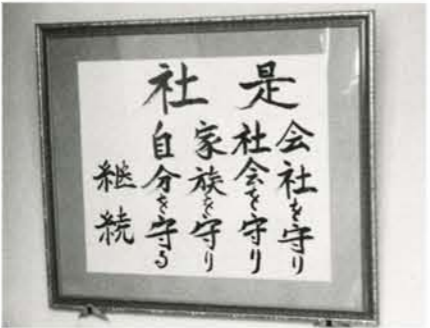 社是
会社を守り
社会を守り
家族を守り
自分を守る
継続